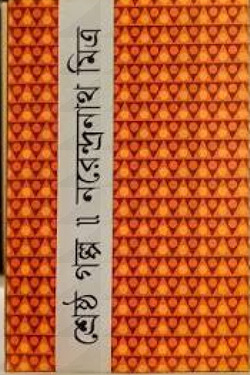 শ্রেষ্ঠ গল্প ॥ নরেন্দ্রনাথ মিত্র